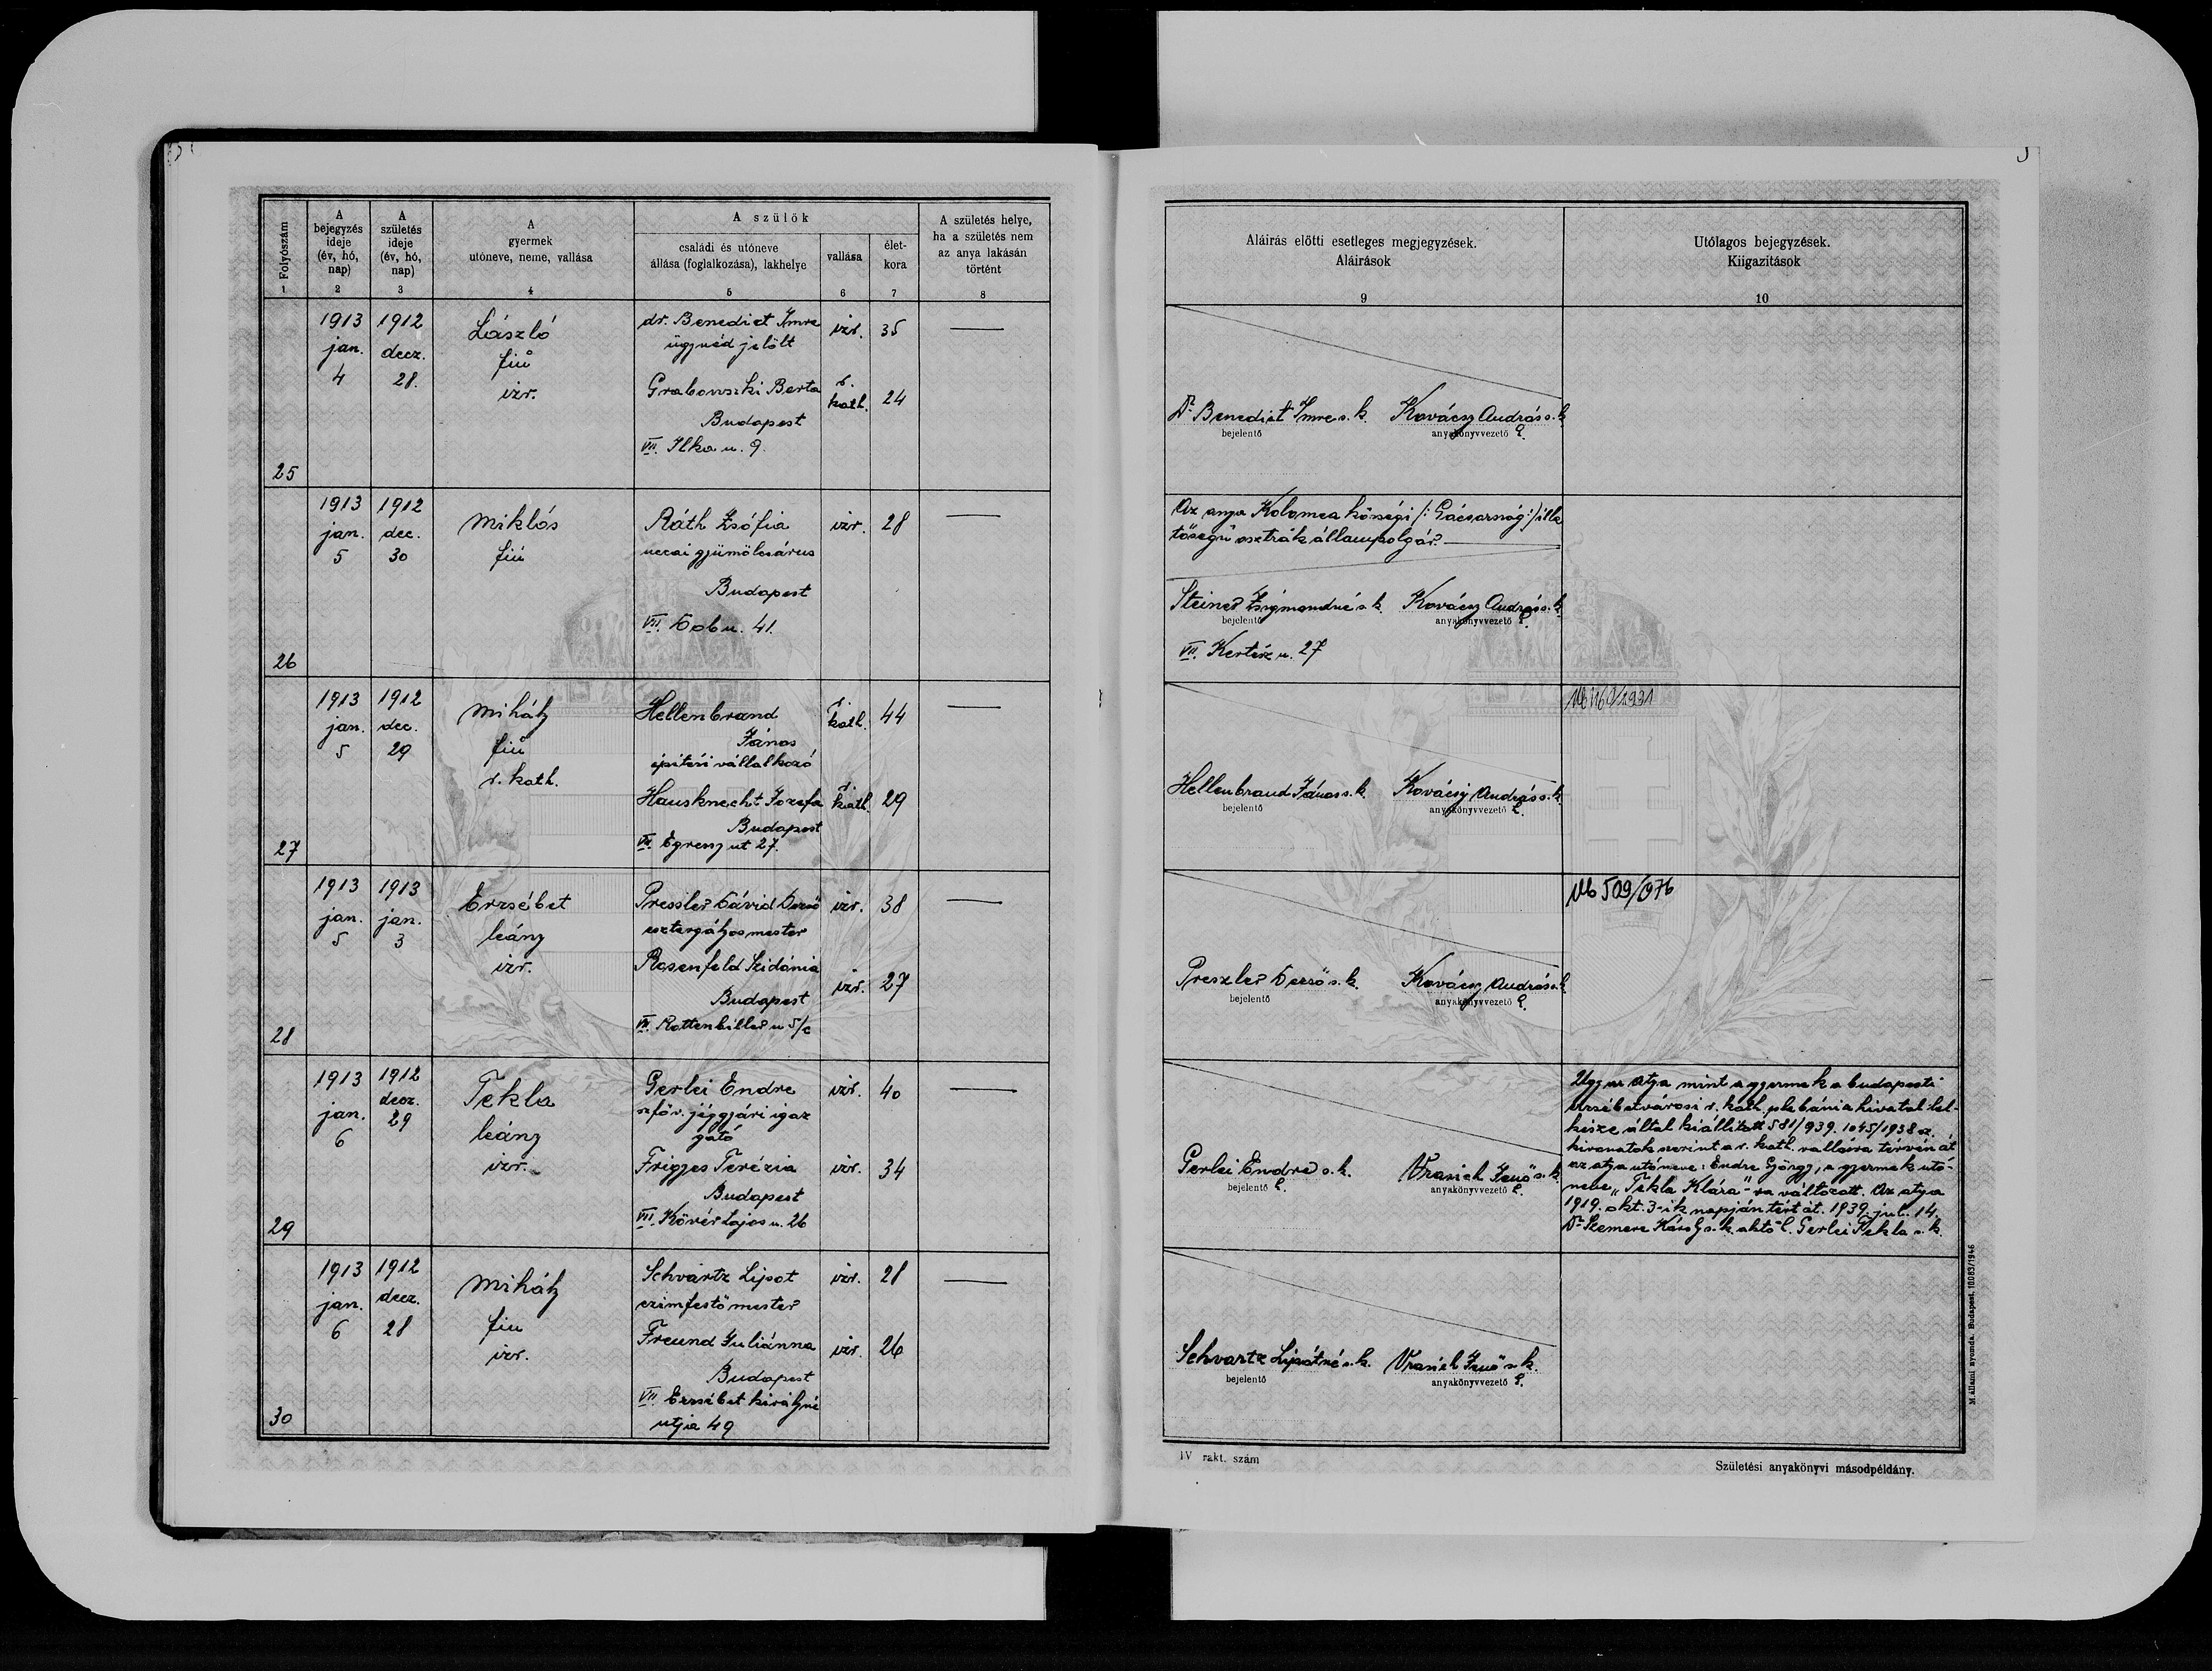 Folyószám
1
A
bejegyzés
ideje
(év, hó,
nap)
2
A
születés
ideje
(év, hó,
nap)
3
A
gyermek
utóneve, neme, vallása
4
A szülők
családi és utóneve
állása (foglalkozása), lakhelye
5
vallása
6
élet-
kora
7
A születés helye,
ha a születés nem
az anya lakásán
történt
8
25
1913
jan.
4
1912
decz.
28.
László
fiú
izr.
dr. Benedict Imre
ügyvéd jelölt
izr. 35
Grabowszki Berta
r.
kath. 24
Budapest
VII. Ilka u. 9.
26
1913
jan.
5
1912
dec.
30
Miklós
fiú
Ráth Zsófia
uccai gyümölcsárus
izr. 28
Budapest
VII. Dob u. 41.
27
1913
jan.
5
1912
dec.
29
Mihály
fiú
r. kath.
Hellenbrand
János
építési vállalkozó
r.
kath. 44
Hausknecht Jozefa
r.
kath. 29
Budapest
VII. Egressy ut 27.
28
1913
jan.
5
1913
jan.
3
Erzsébet
leány
izr.
Pressler Dávid Dezső
esztergályos mester
izr. 38
Rosenfeld Szidónia
izr. 27
Budapest
VII. Rottenbiller u 5/c
29
1913
jan.
6
1912
decz.
29
Tekla
leány
izr.
Gerlei Endre
szföv. jéggyári igaz
gató
izr. 40
Frigyes Terézia
izr. 34
Budapest
VII. Kövér Lajos u. 26
30
1913
jan.
6
1912
decz.
28
Mihály
fiu
izr.
Schvartz Lipot
czimfestő mester
izr. 28
Freund Juliánna
izr. 26
Budapest
VII Erzsébet királyné
utja 49
Aláírás előtti esetleges megjegyzések.
Aláírások
9
Utólagos bejegyzések.
Kiigazítások
10
Dr Benedict Imre s. k. Kovácsy András s. k.
bejelentő anyakönyvvezető h.
Az anya Kolomea községi /: Gácsország :/ ille
tőségű osztrák állampolgár.
Steiner Zsigmondné s. k. Kovácsy András s. k.
bejelentő anyakönyvvezető h.
VII. Kertész u. 27
Hellenbrand János s. k. Kovácsy András s. k.
bejelentő anyakönyvvezető h.
Mb 509/976
Preszler Dezső s. k. Kovácsy András s. k.
bejelentő anyakönyvvezető h.
Gerlei Endre s. k. Vranich Jenő s. k.
bejelentő h. anyakönyvvezető h.
Ugy az atya mint a gyermek a budapesti
erzsébetvárosi r. kath. plebánia hivatal lel-
késze által kiállitott 581/939. 1045/1938 sz.
kivonatok szerint a r. kath. vallásra térvén át
az atya utóneve: Endre György, a gyermek utó-
neve "Tekla Klára"-ra változott. Az atya
1919. okt. 3-ik napján tért át. 1939. jul. 14.
Dr Szemere Károly s. k. aktő h. Gerlei Tekla s. k.
Schvartz Lipótné s. k. Vranich Jenő s. k.
bejelentő anyakönyvvezető h.
IV rakt. szám
Születési anyakönyvi másodpéldány.
M. állami nyomda. Budapest. 10083/1946